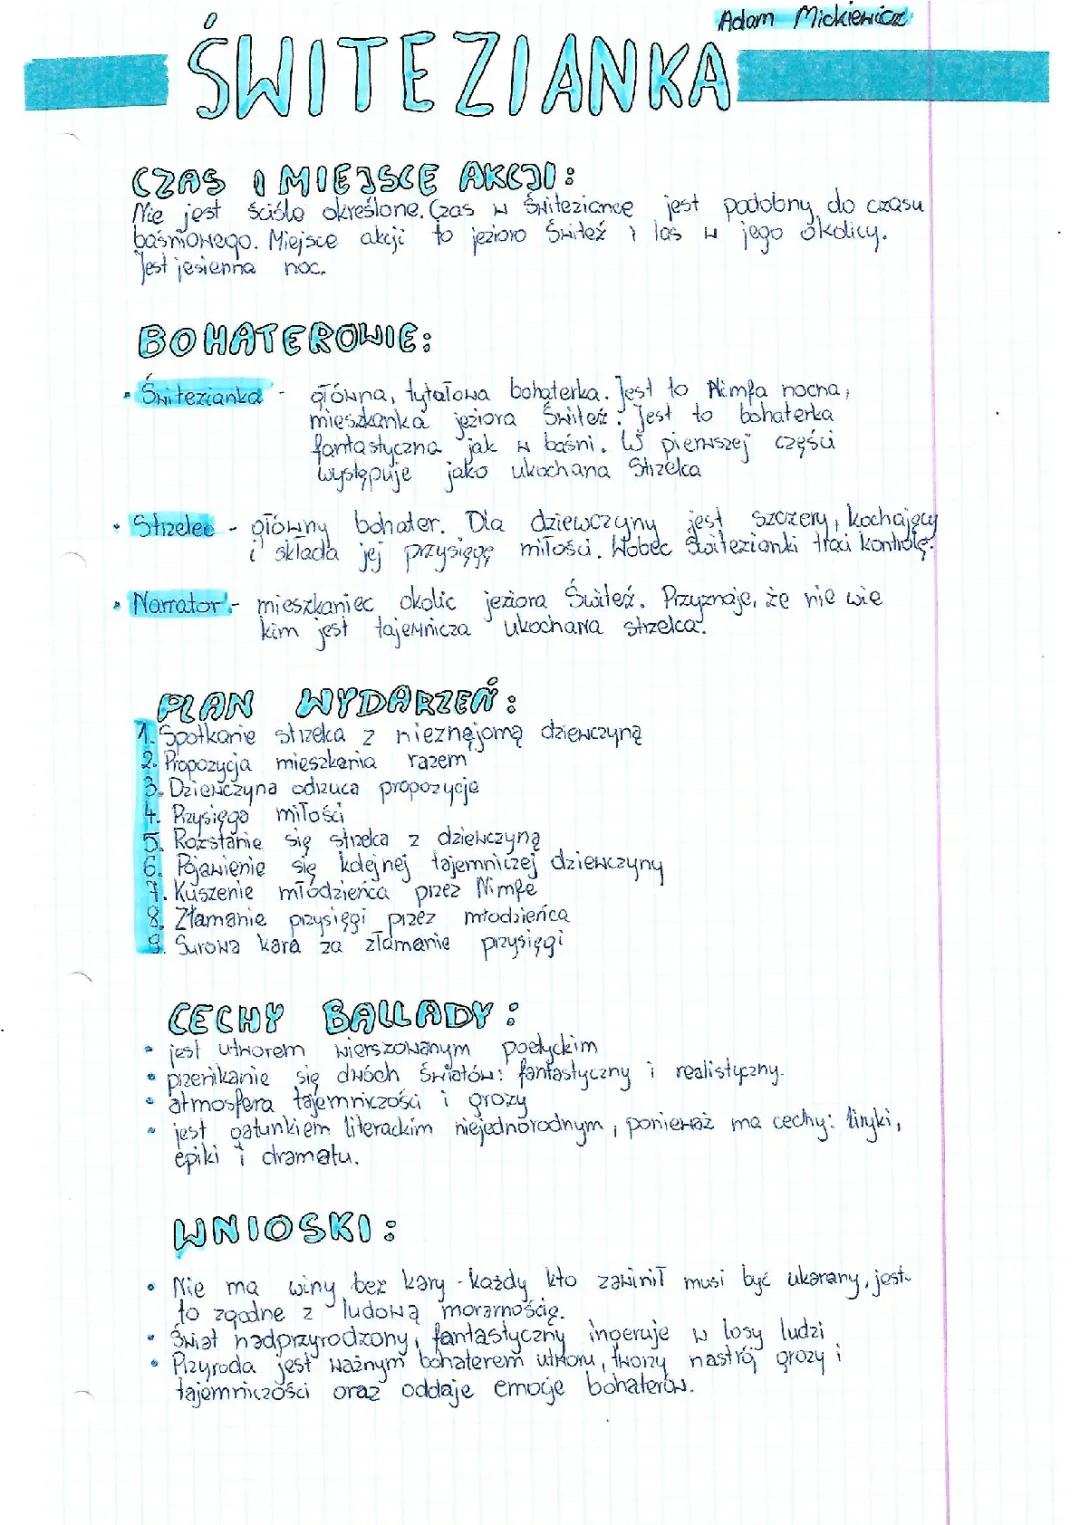 Adam Mickiewicz
ŚWITEZIANKA
CZAS I MIEJSCE AKCJI:
Nie jest ściśle określone. Czas w Świteziance jest podobny do czasu
baśniowego. Miejsce akcji to jezioro Świteź i las w jego okolicy.
Jest jesienna noc.
BOHATEROWIE:
• Świtezianka - główna, tytułowa bohaterka. Jest to Nimfa nocna,
mieszkanka jeziora Świteź. Jest to bohaterka
fantastyczna jak w baśni. W pierwszej części
występuje jako ukochana Strzelca
• Strzelec - główny bohater. Dla dziewczyny jest szczery, kochający
i składa jej przysięgę miłości. Wobec Świtezianki traci kontrolę.
• Narrator - mieszkaniec okolic jeziora Świteź. Przyznaje, że nie wie
kim jest tajemnicza ukochana strzelca.
PLAN WYDARZEŃ:
1. Spotkanie strzelca z nieznajomą dziewczyną
2. Propozycja mieszkania razem
3. Dziewczyna odrzuca propozycje
4. Przysięga miłości
5. Rozstanie się strzelca z dziewczyną
6. Pojawienie się kolejnej tajemniczej dziewczyny
7. Kuszenie młodzieńca przez Nimfe
8. Złamanie przysięgi przez młodzieńca
9. Surowa kara za złamanie przysięgi
CECHY BALLADY:
• jest utworem wierszowanym poetyckim
• przenikanie się dwóch światów: fantastyczny i realistyczny.
• atmosfera tajemniczości i grozy
• jest gatunkiem literackim niejednorodnym, ponieważ ma cechy: liryki,
epiki i dramatu.
WNIOSKI:
• Nie ma winy bez kary - każdy kto zawinił musi być ukarany, jest
to zgodne z ludową moralnością.
• Świat nadprzyrodzony, fantastyczny ingeruje w losy ludzi
• Przyroda jest ważnym bohaterem utworu, tworzy nastrój grozy i
tajemniczości oraz oddaje emocje bohaterów.